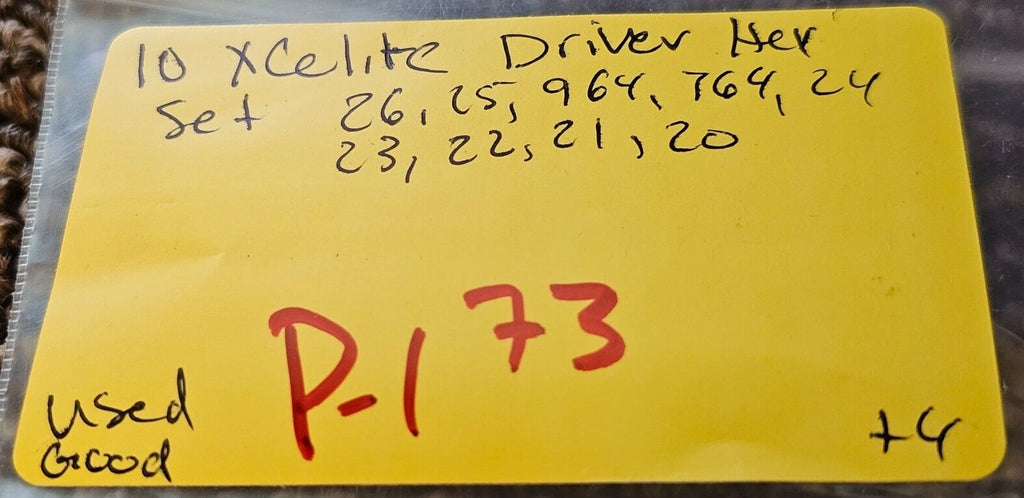 10 Xcelite Driver Hex
Set 26, 25, 964, 764, 24
23, 22, 21, 20
P-1 73
used
Good
+4